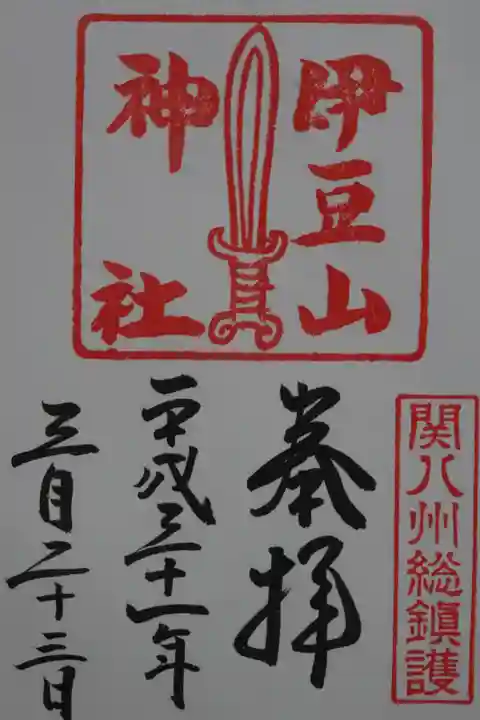 伊豆山
神社
関八州総鎮護
奉拝
平成三十一年
三月二十三日